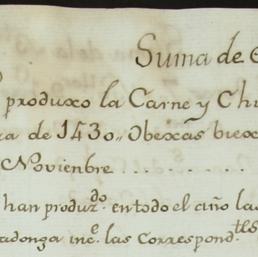 Suma de
produxo la Carne y Chi
ra de 1430,, Obexas biex
Novienbre . . . . . . .
han produz.do en todo el año las
adonga inc.e las Correspond.tes